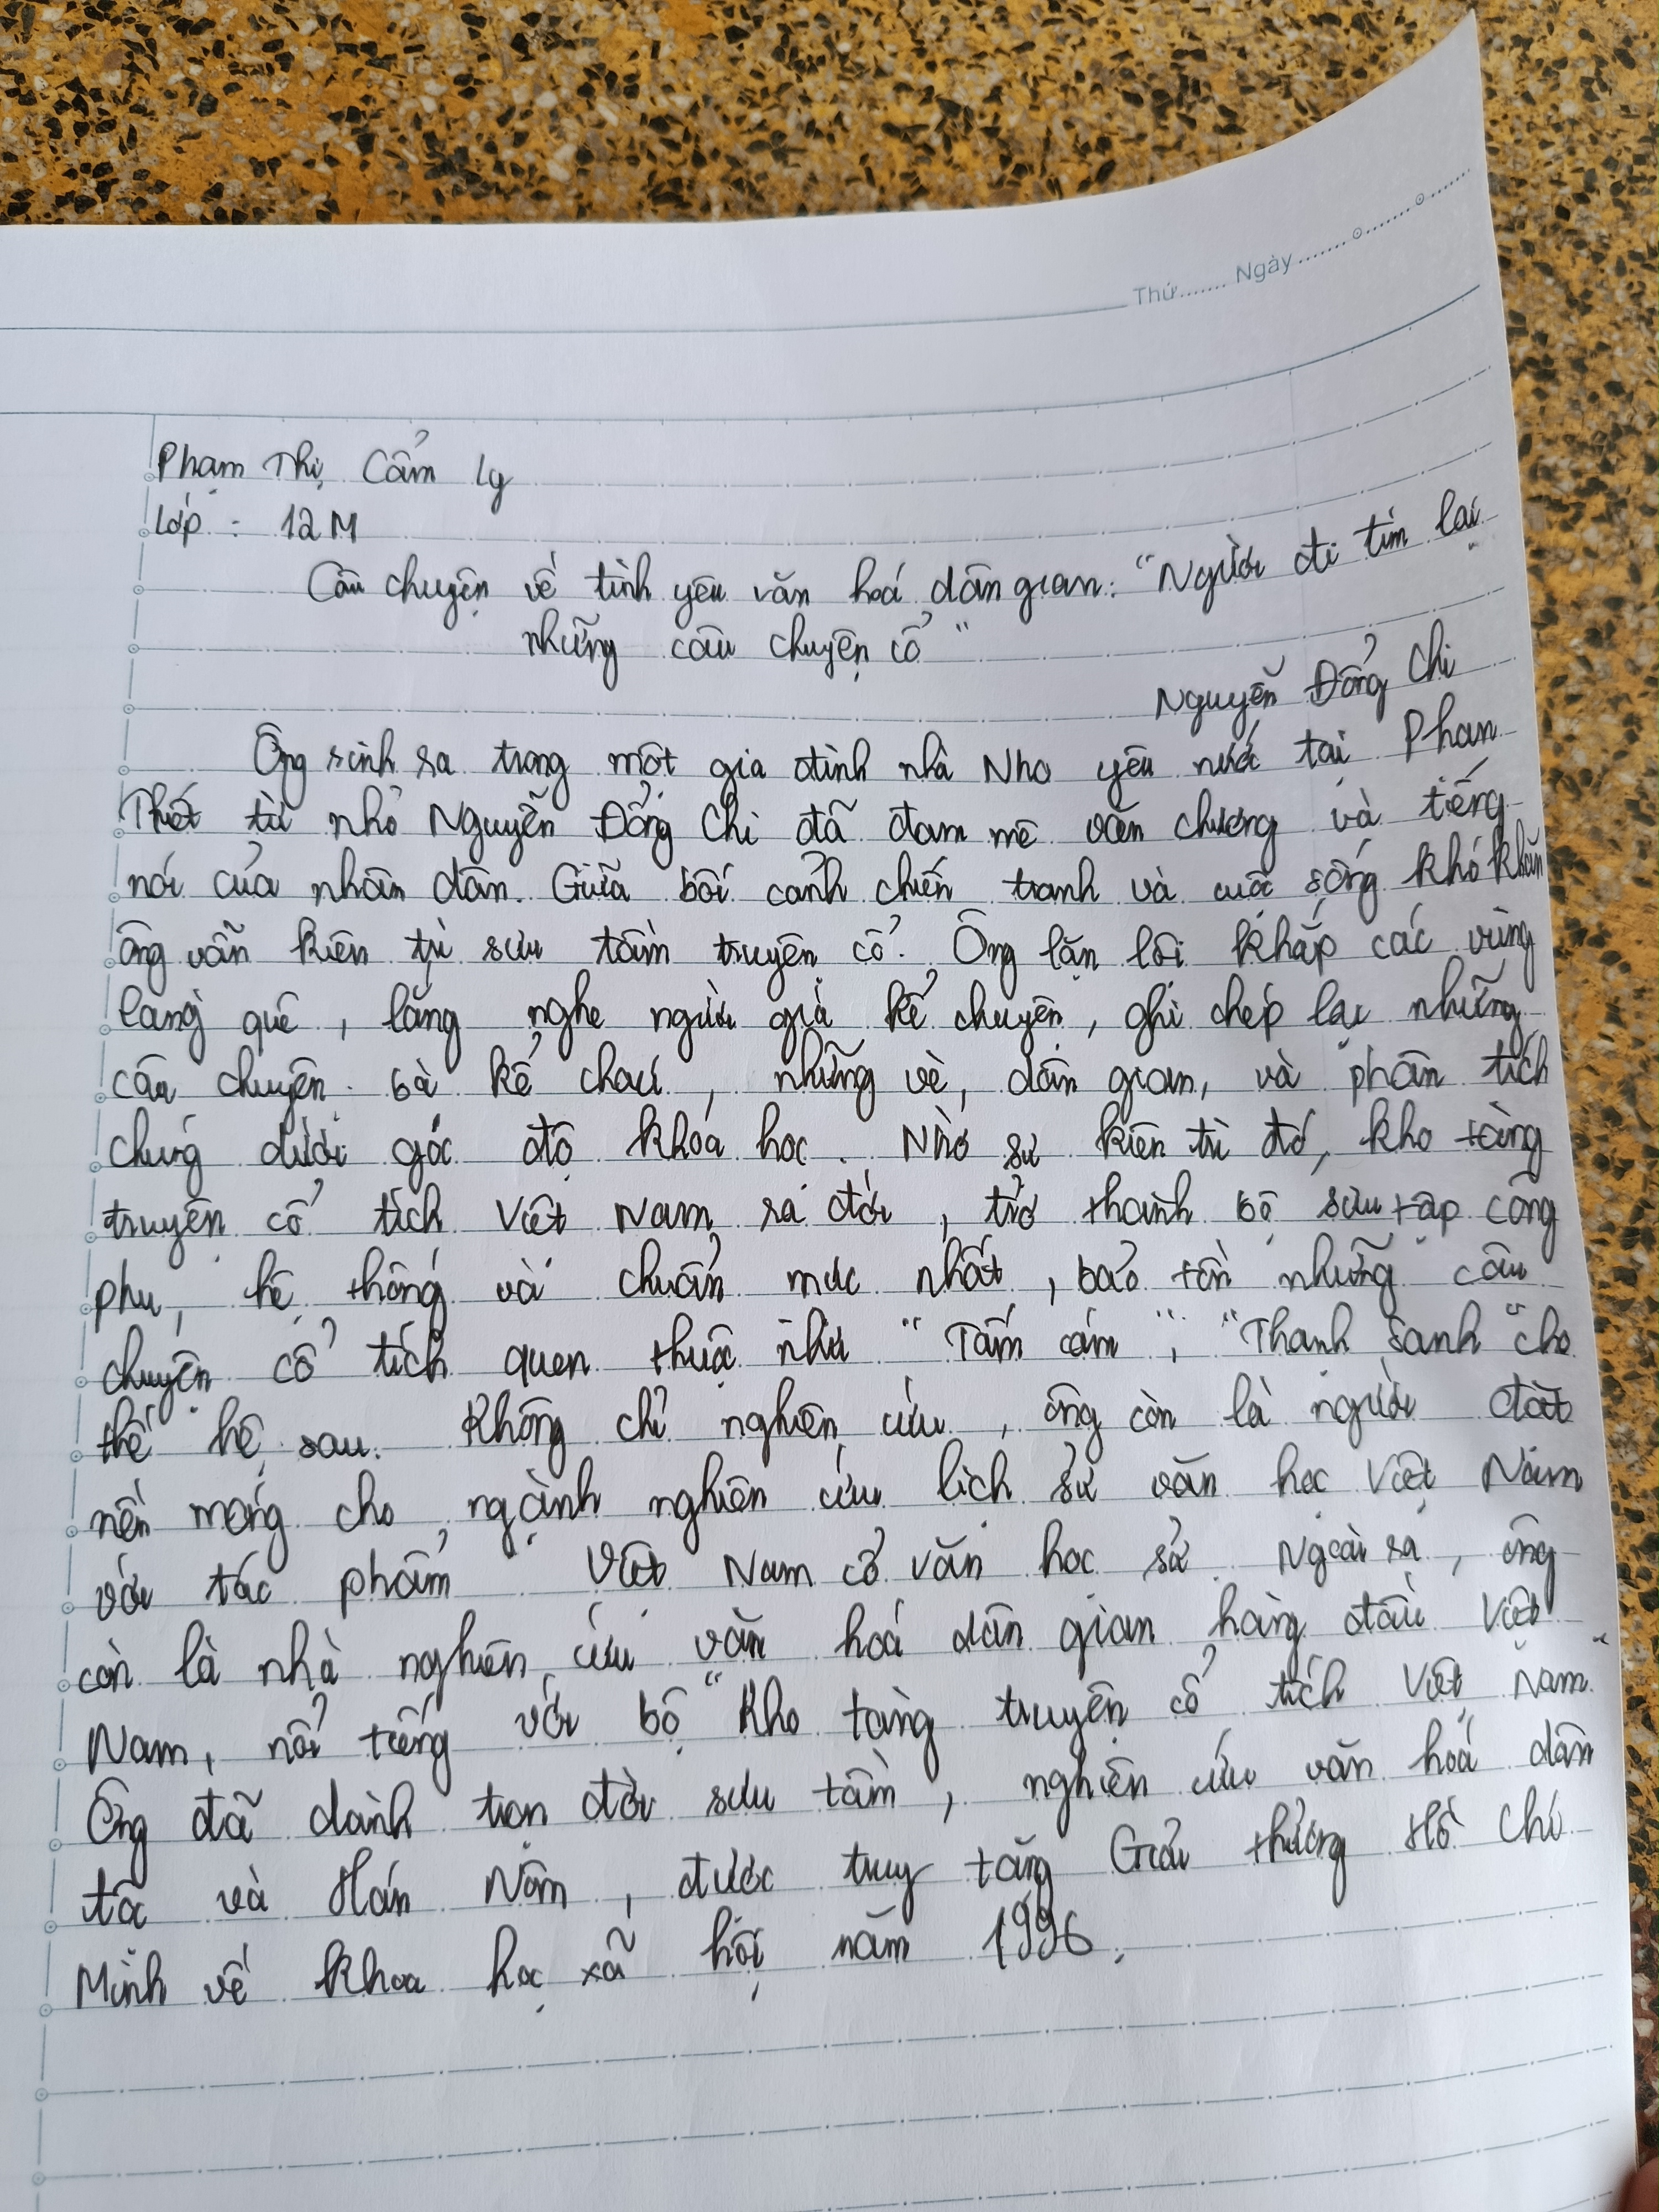 Thứ....... Ngày.......o.......o.......
Phạm Thị Cẩm Ly
Lớp : 12M
Câu chuyện về tình yêu văn hoá dân gian: "Người đi tìm lại
những câu chuyện cổ"
Nguyễn Đổng Chi
Ông sinh ra trong một gia đình nhà Nho yêu nước tại Phan
Thiết từ nhỏ Nguyễn Đổng Chi đã đam mê văn chương và tiếng
nói của nhân dân. Giữa bối cảnh chiến tranh và cuộc sống khó khăn
ông vẫn kiên trì sưu tầm truyện cổ. Ông lặn lội khắp các vùng
làng quê, lắng nghe người già kể chuyện, ghi chép lại những
câu chuyện bà kể cháu, những vè, dân gian, và phân tích
chúng dưới góc độ khoa học. Nhờ sự kiên trì đó, kho tàng
truyện cổ tích Việt Nam ra đời, trở thành bộ sưu tập công
phu, hệ thống và chuẩn mực nhất, bảo tồn những câu
chuyện cổ tích quen thuộc như "Tấm cám", "Thạnh Sanh" cho
thế hệ sau. Không chỉ nghiên cứu, ông còn là người đặt
nền móng cho ngành nghiên cứu lịch sử văn học Việt Nam
với tác phẩm Việt Nam cổ văn học sử. Ngoài ra, ông
còn là nhà nghiên cứu văn hoá dân gian hàng đầu Việt
Nam, nổi tiếng với bộ "Kho tàng truyện cổ tích Việt Nam"
Ông đã dành trọn đời sưu tầm, nghiên cứu văn hoá dân
tộc và Hán Nôm, được truy tặng Giải thưởng Hồ Chí
Minh về khoa học xã hội năm 1996.